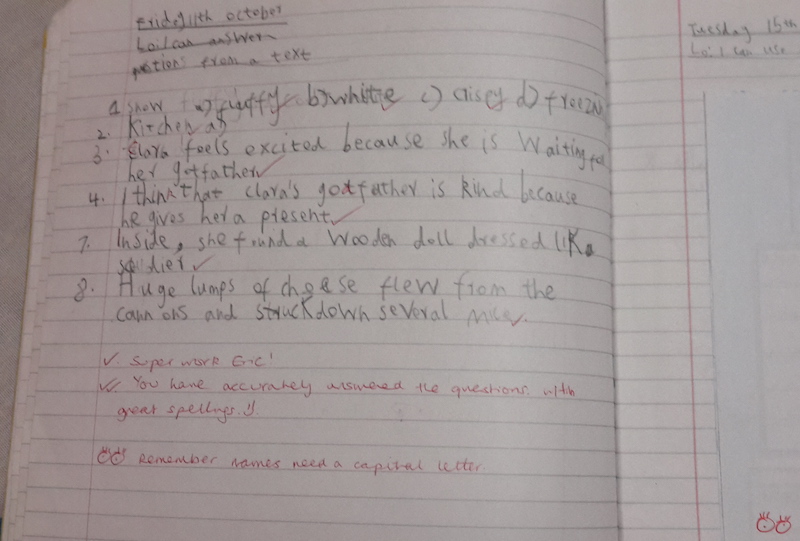 Friday 11th october
Lo: I can answer
from a text
1. snow a) fluffy b) white c) crisp d) frozen
2. Kitchen
3. Clara feels excited because she is Waiting for
her gotfather
4. I think that clara's godfather is kind because
he gives her a present
7. Inside, she found a wooden doll dressed like a
soldier
8. Huge lumps of cheese flew from the
cannons and struck down several mice.
Super work Eric!
You have accurately answered the questions with
great spellings.
Remember names need a capital letter.
Tuesday 15th
Lo: I can use